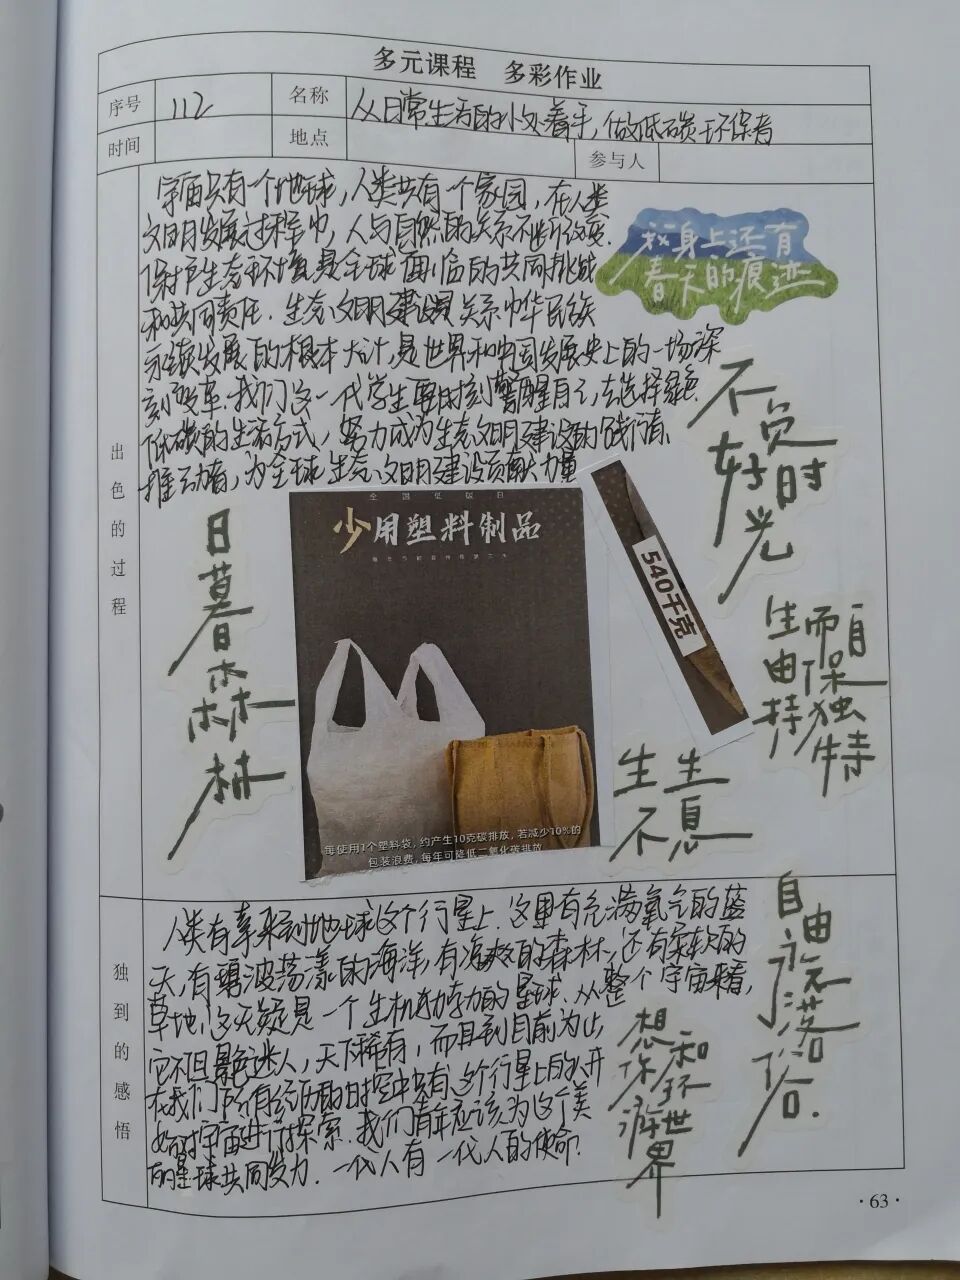 多元课程 多彩作业
序号 112 名称 从日常生活的小处着手，做低碳环保者
时间 地点 参与人
出色的过程
宇宙只有一个地球，人类共有一个家园，在人类
文明发展过程中，人与自然的关系不断改变.
保护生态环境是全球面临的共同挑战
和共同责任. 生态文明建设是关系中华民族
永续发展的根本大计，是世界和中国发展史上的一场深
刻变革. 我们这一代学生要时刻警醒自己，去选择绿色
低碳的生活方式，努力成为生态文明建设的践行者、
推动者，为全球生态文明建设贡献力量
我身上还有
春天的痕迹
不负
好时
光
日暮森林
全国低碳日
少用塑料制品
每使用1个塑料袋，约产生10克碳排放，若减少10%的
包装浪费，每年可降低二氧化碳排放
540千克
生而自
由保
持独
特
生生
不息
独到的感悟
人类有幸来到地球这个行星上. 这里有充满氧气的蓝
天，有碧波荡漾的海洋，有凉爽的森林，还有柔软的
草地，这无疑是一个生机勃勃的星球. 从整个宇宙来看，
它不但景色迷人，天下稀有，而且到目前为止，
在我们所有经历的时空中只有这个行星上的人开
始对宇宙进行探索. 我们青年应该为这个美
丽星球共同发力. 一代人有一代人的使命.
自由
永不
落
俗.
想和
你环
游世
界
·63·